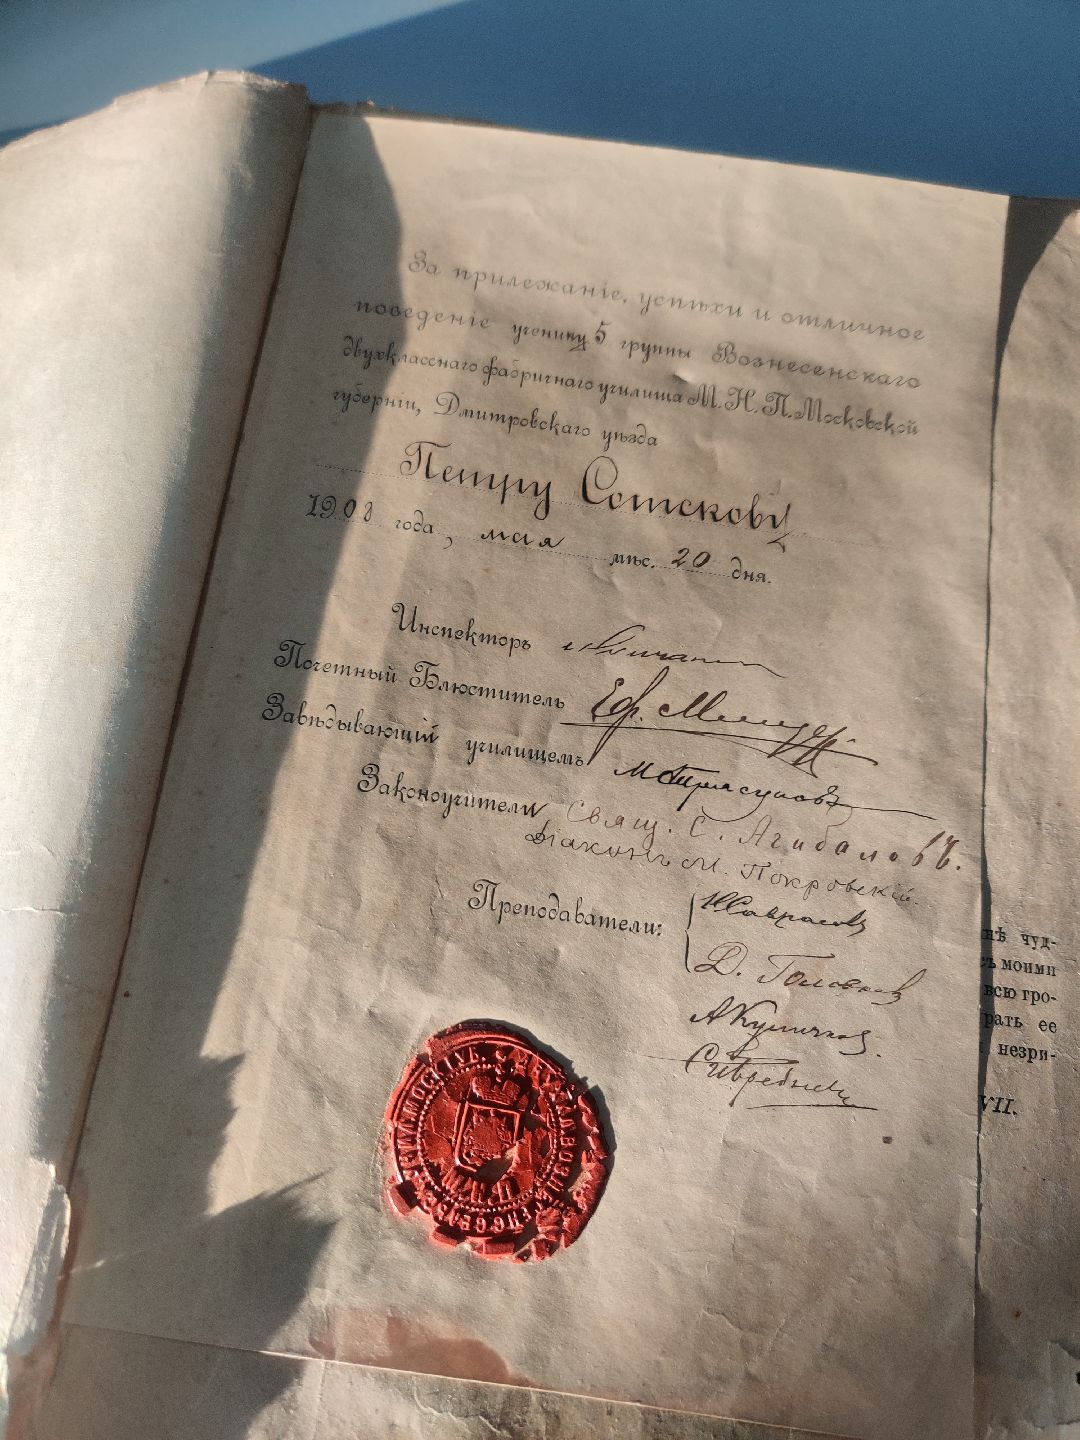 За прилежаніе, успѣхи и отличное
поведеніе ученику 5 группы Вознесенскаго
двухкласснаго фабричнаго училища М. Н. П. Московской
губерніи, Дмитровскаго уѣзда
Петру Сотскову
1908 года, мая мѣс. 20 дня.
Инспекторъ
Почетный Блюститель Еф.
Завѣдывающій училищемъ
Законоучители Свящ. С. Агибаловъ.
Діаконъ М. Покровскій.
Преподаватели:
Д. Головков
А Куničков.
нѣ чуд-
ъ моими
всю гро-
рать ее
незри-
VII.